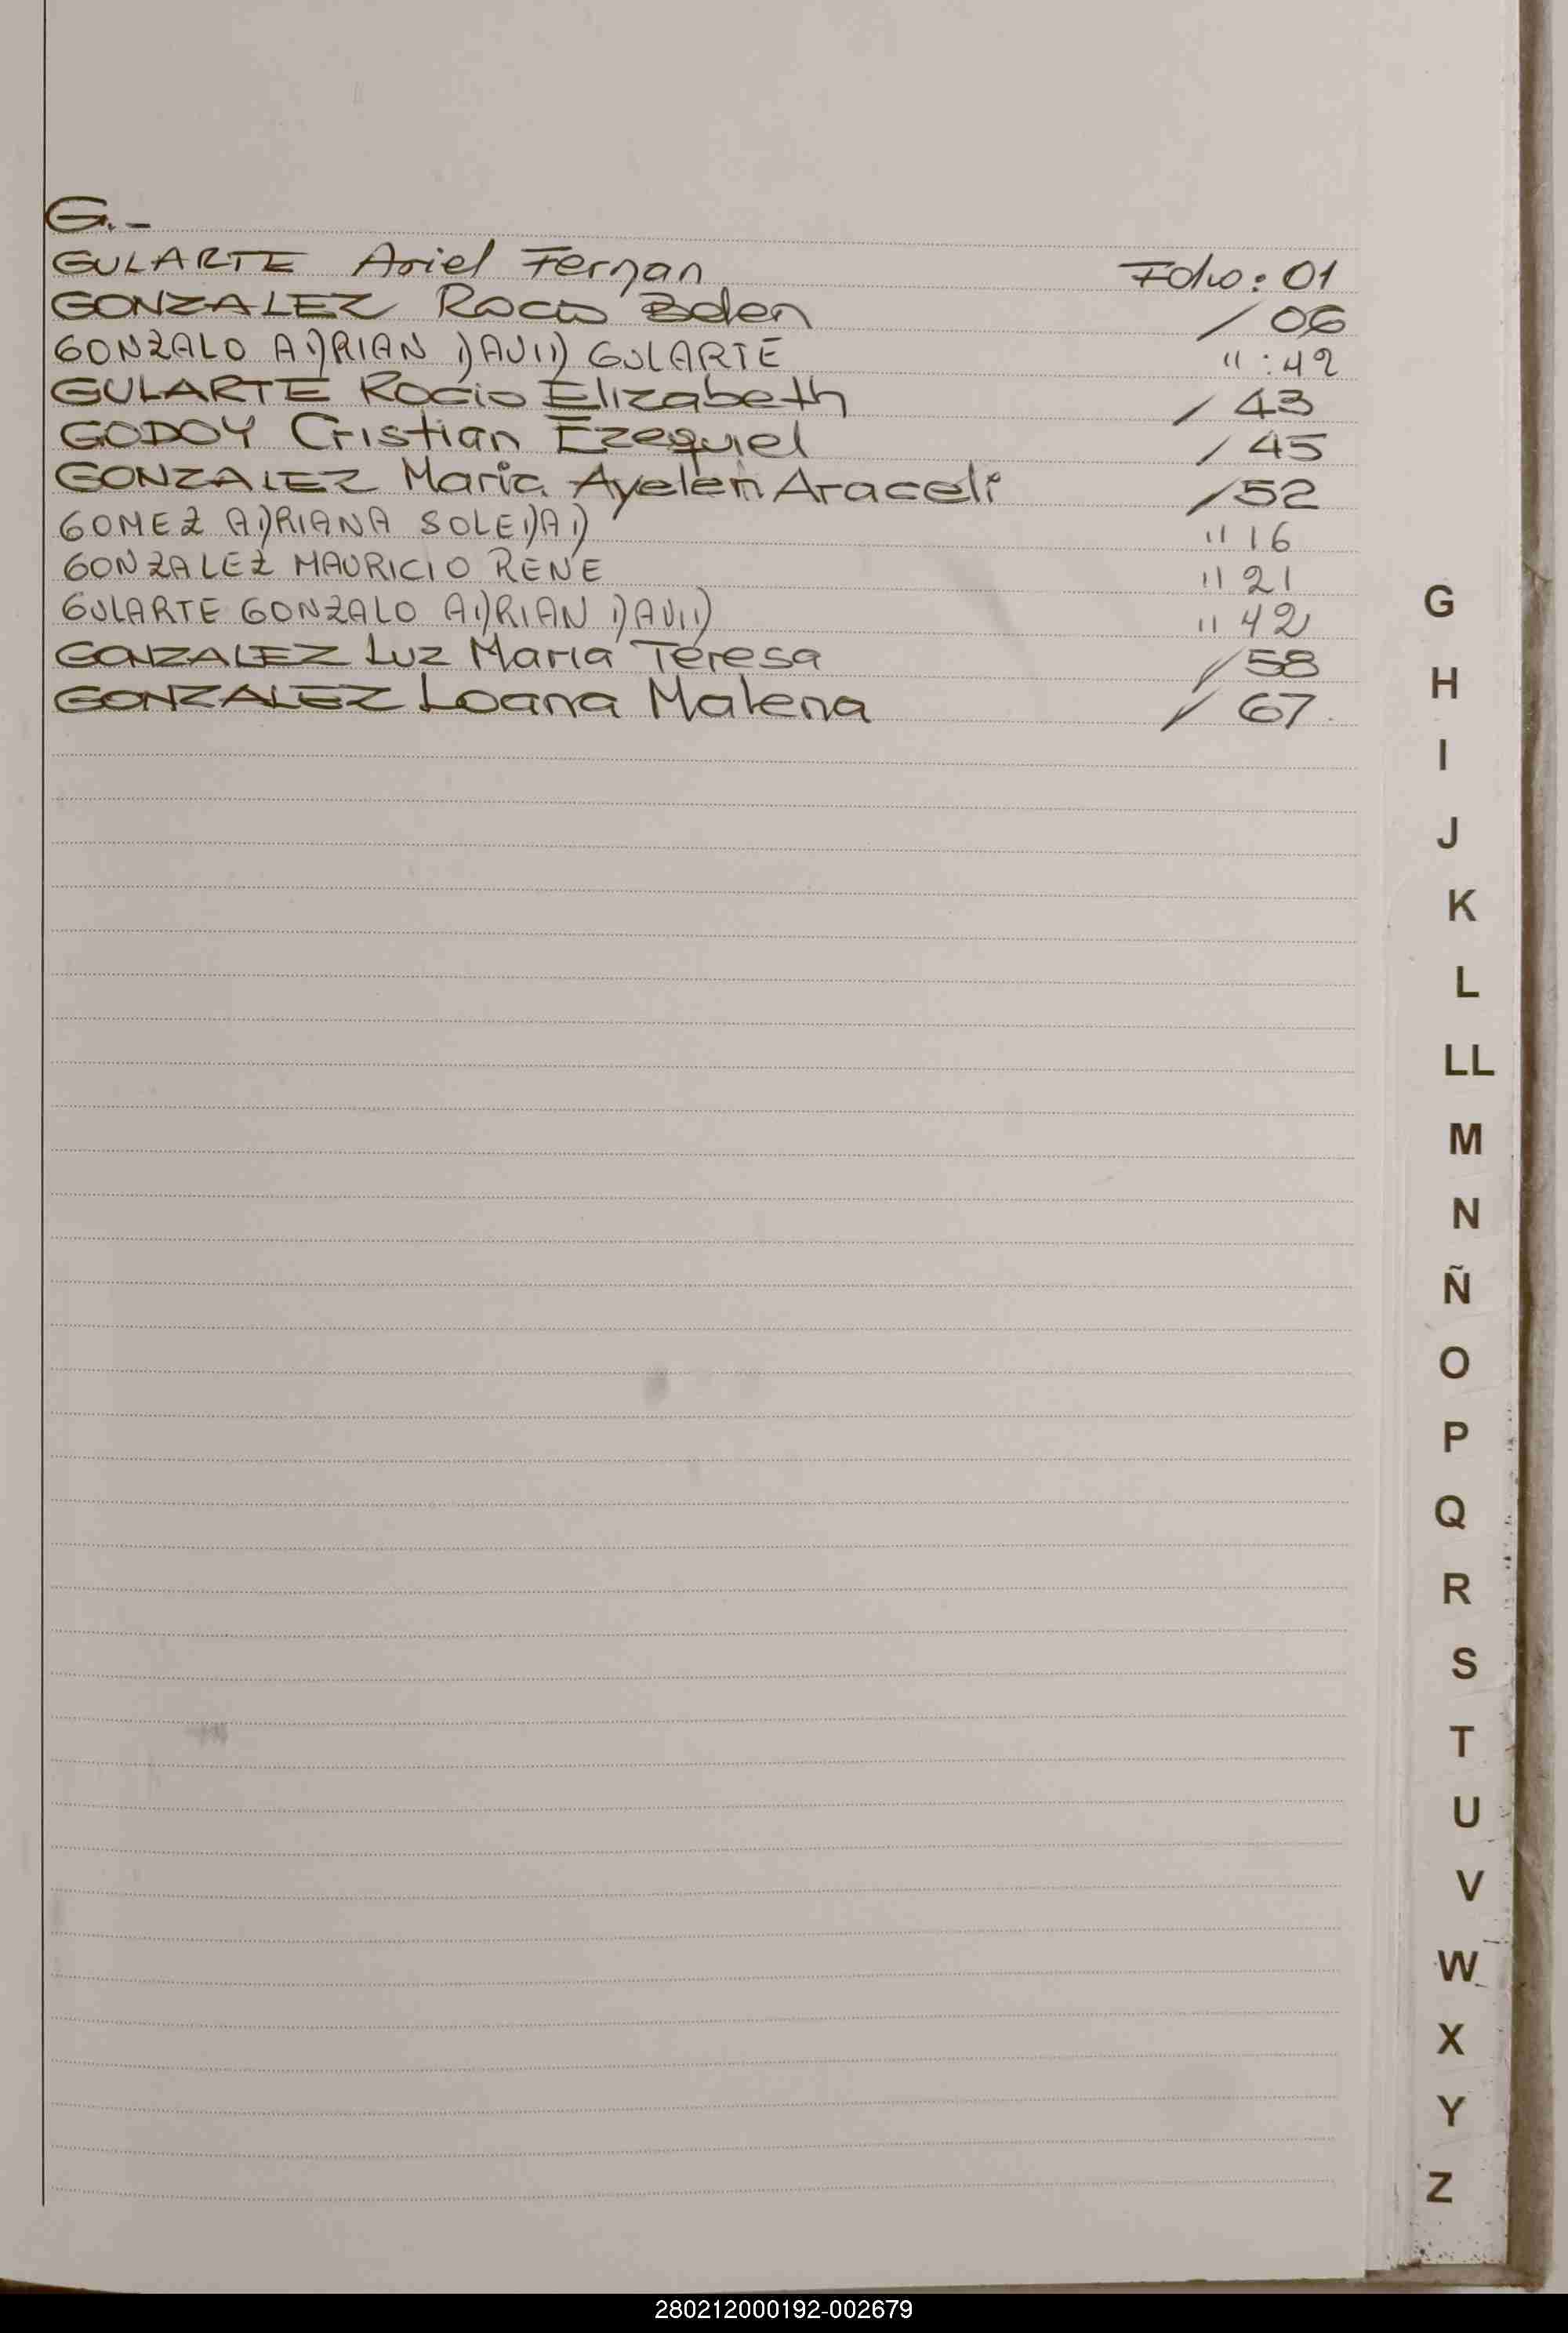 G.-
GULARTE Ariel Fernan Folio: 01
GONZALEZ Rocio Belen / 06
GONZALO ADRIAN DAVID GULARTE " : 42
GULARTE Rocio Elizabeth / 43
GODOY Cristian Ezequiel / 45
GONZALEZ Maria Ayelen Araceli / 52
GOMEZ ADRIANA SOLEDAD " 16
GONZALEZ MAURICIO RENE " 21
GULARTE GONZALO ADRIAN DAVID " 42
GONZALEZ Luz Maria Teresa / 58
GONZALEZ Loana Malena / 67
G
H
I
J
K
L
LL
M
N
Ñ
O
P
Q
R
S
T
U
V
W
X
Y
Z
280212000192-002679